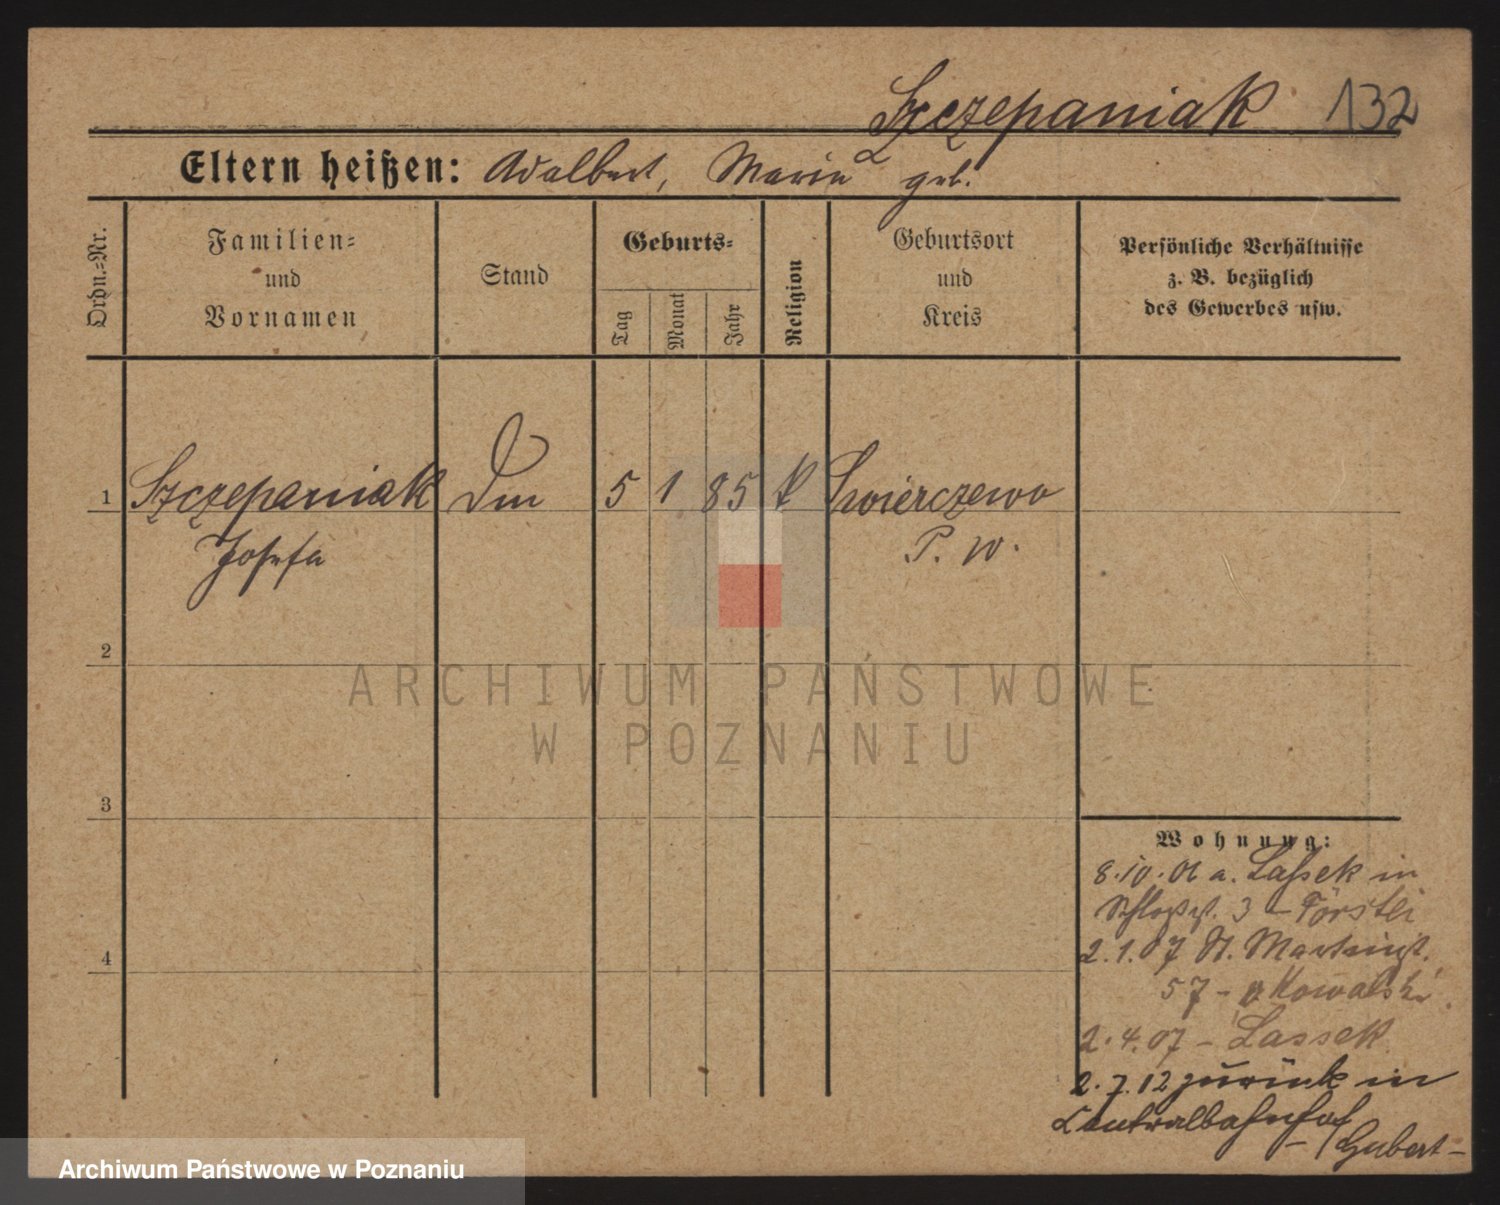 Szczepaniak 132
Eltern heißen: Adalbert, Maria geb.
Ordn.=Nr.
Familien=
und
Vornamen
Stand
Geburts=
Tag
Monat
Jahr
Religion
Geburtsort
und
Kreis
Persönliche Verhältnisse
z. B. bezüglich
des Gewerbes usw.
1 Szczepaniak Dm 5 1 85 k Swierczewo
Josefa P. W.
2
3
4
Wohnung:
8.10.06 a. Lassek in
Schloßst. 3 – Förster
2.1.07 St. Martinst.
57 – Kowalski
2.4.07 – Lassek
2.7.12 zurück in
Centralbahnhof
– Gubert –
ARCHIWUM PAŃSTWOWE
W POZNANIU
Archiwum Państwowe w Poznaniu